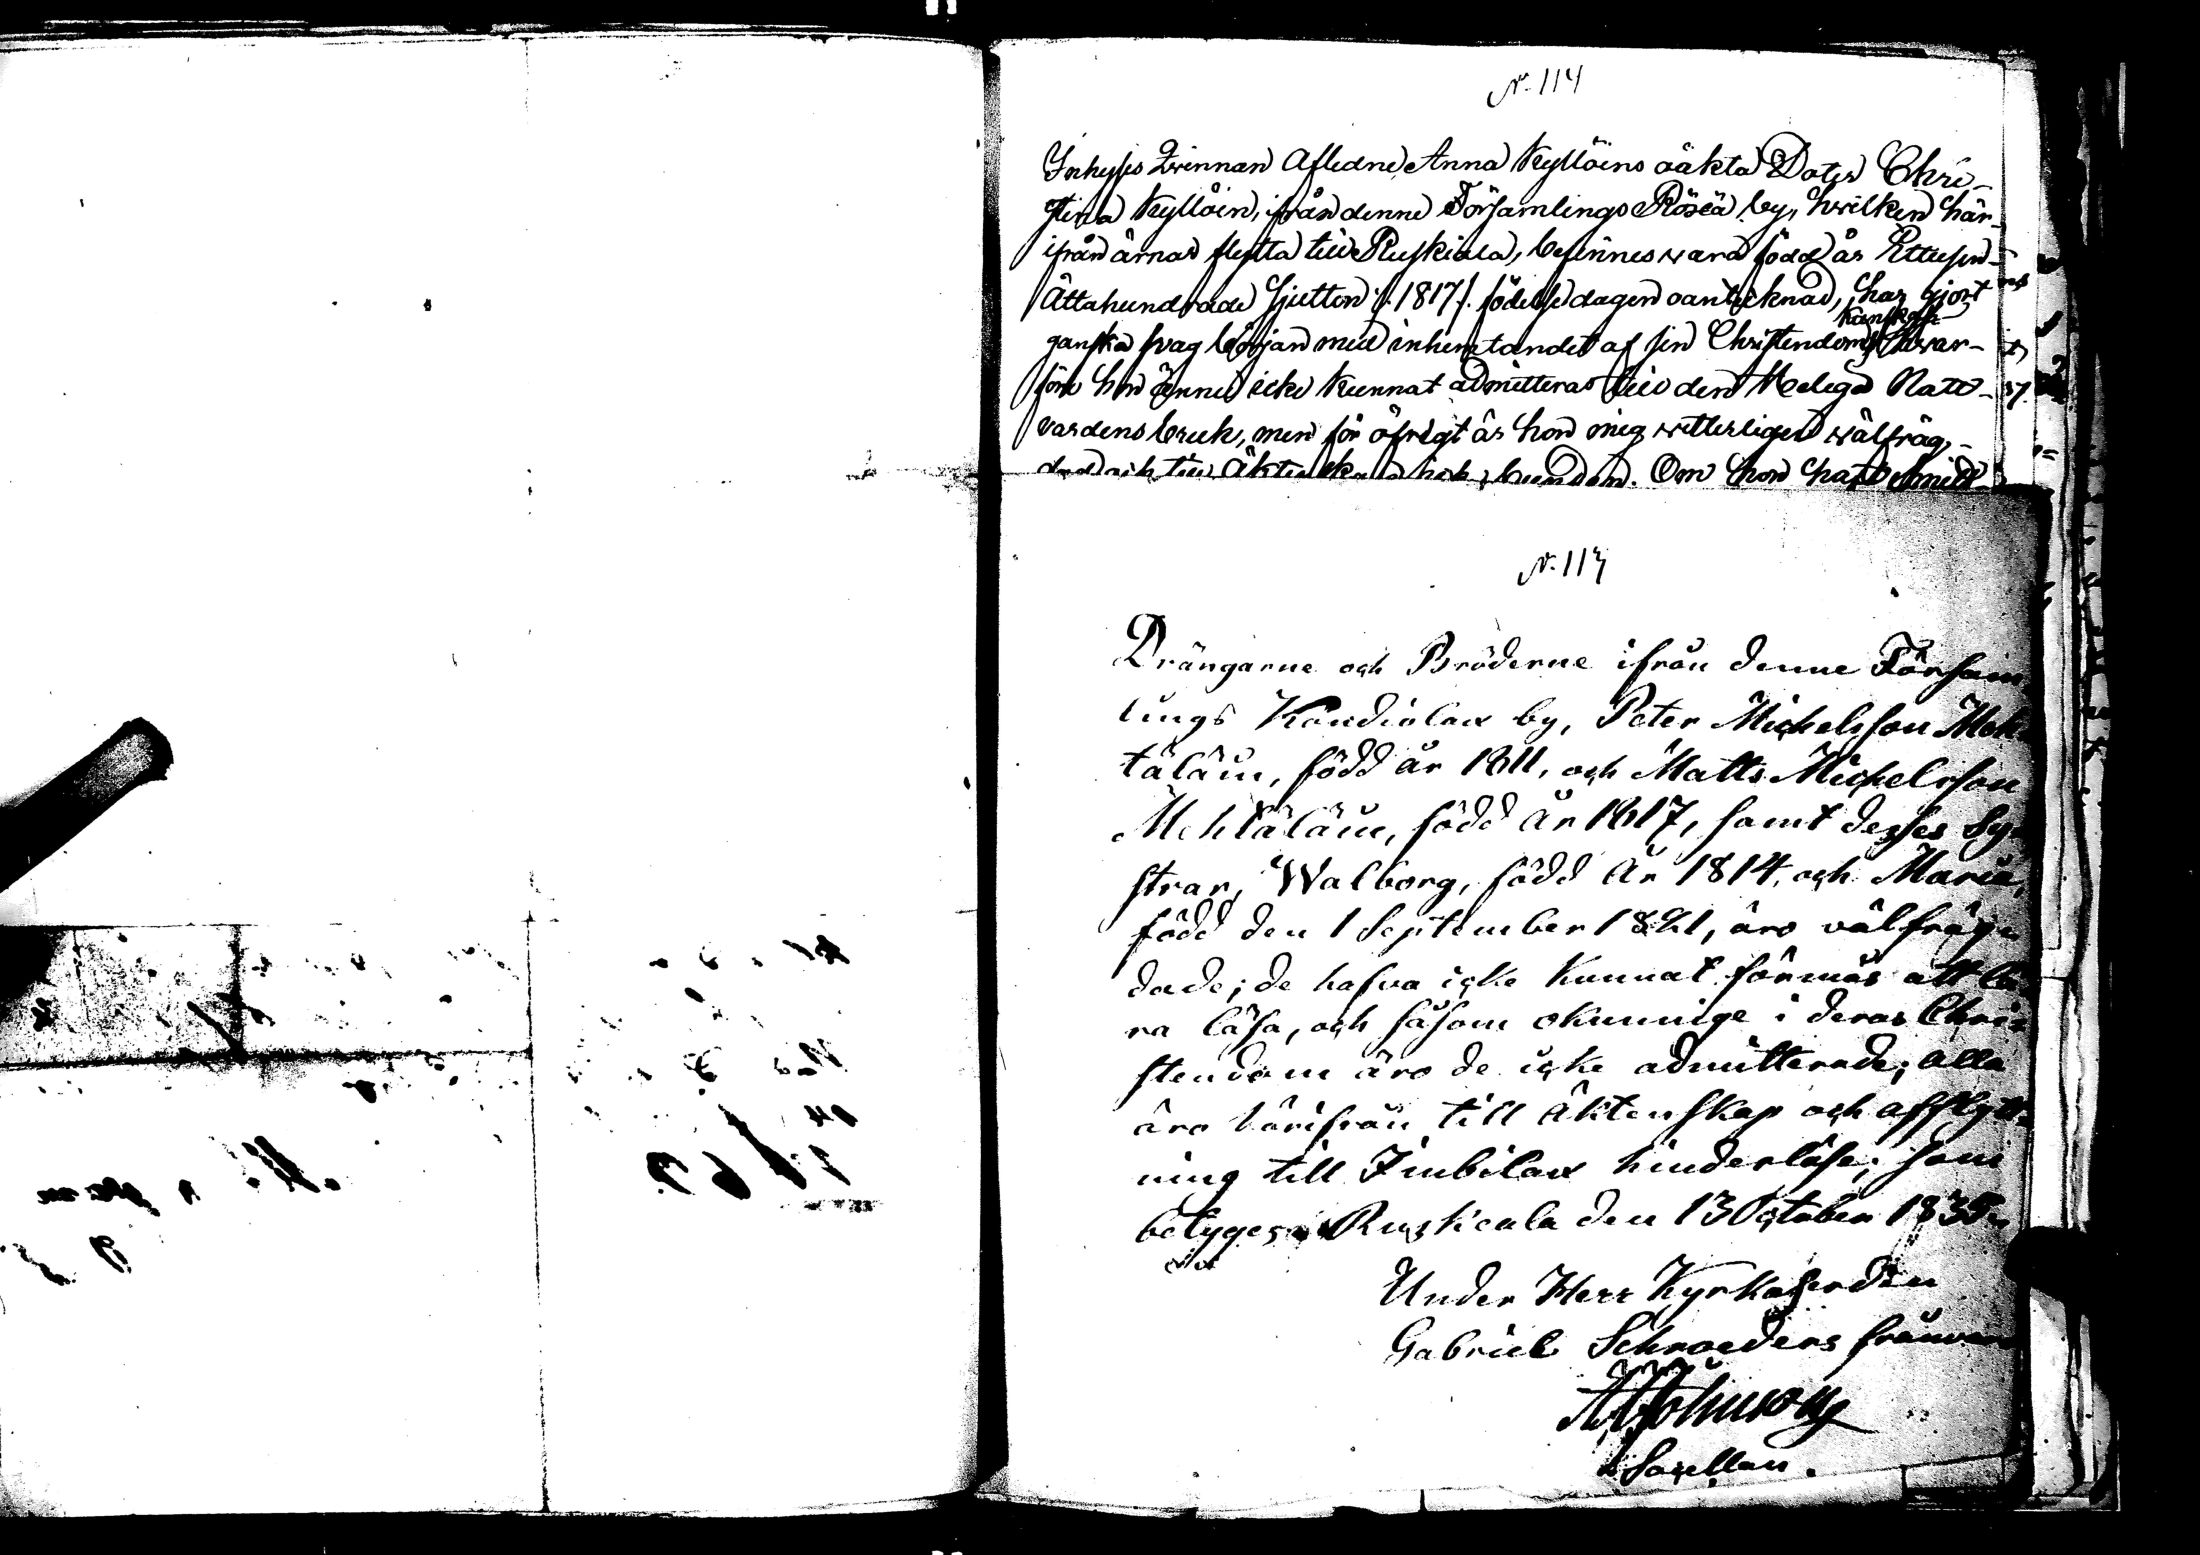 N. 114
Inhyses Qvinnan Aflidne Anna Kyllöins oäkta Doter Chri-
stina Kyllöin, ifrån denne Församlings Röskä by, hvilken här-
ifrån ärnar flytta till Ruskiala, befinnes vara född år Ettusen-
Åttahundrade Sjutton /: 1817 /: födelse dagen oantecknad, har gjort
kunskap
ganska svag början med inhemtandet af sin Christendoms hvar-
före hon ännu icke kunnat admitteras till den Heliga Natt-
vardens bruk, men för öfrigt är hon mig vetterligen välfräg-
dad och till Äktenskap obunden. Om hon haft
N. 113
Drängarne och Bröderne ifrån denne Försam
lings Kondiolax by, Peter Michelsson Meh
täläin, född år 1811, och Matts Michelsson
Mehtäläin, född år 1817, samt desses Sy
strar, Walborg, född år 1814, och Maria,
född den 1 September 1821, äro välfräg
dade; de hafva icke kunnat förmås att lä
ra läsa, och såsom okunnige i deras Chri
stendom äro de icke admitterade; alla
äro härifrån till äktenskap och afflytt
ning till Imbilax hinderlöse; som
betyges. Ruskeala den 13 October 1835
Under Herr Kyrkoherden
Gabriel Schroeders frånvaro
Sacellan.